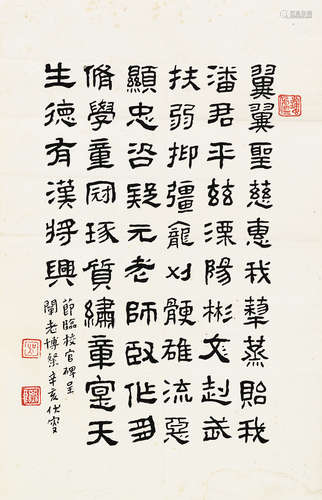 翼翼聖慈惠我犂蒸貽我
潘君平茲溧陽彬文赳武
扶弱抑彊龕刈骾雄流惡
顯忠咨疑元老師臤作朋
脩學童冠琢質繡章寔天
生德有漢將興
節臨校官碑呈
老博粲辛亥仕